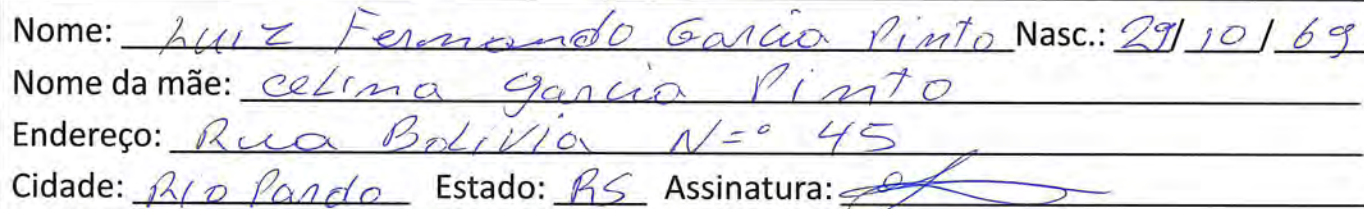 Nome: Luiz Fernando Garcia Pinto Nasc.: 29/10/69
Nome da mãe: celina garcia Pinto
Endereço: Rua Bolivia N=º 45
Cidade: Rio Pardo Estado: RS Assinatura: